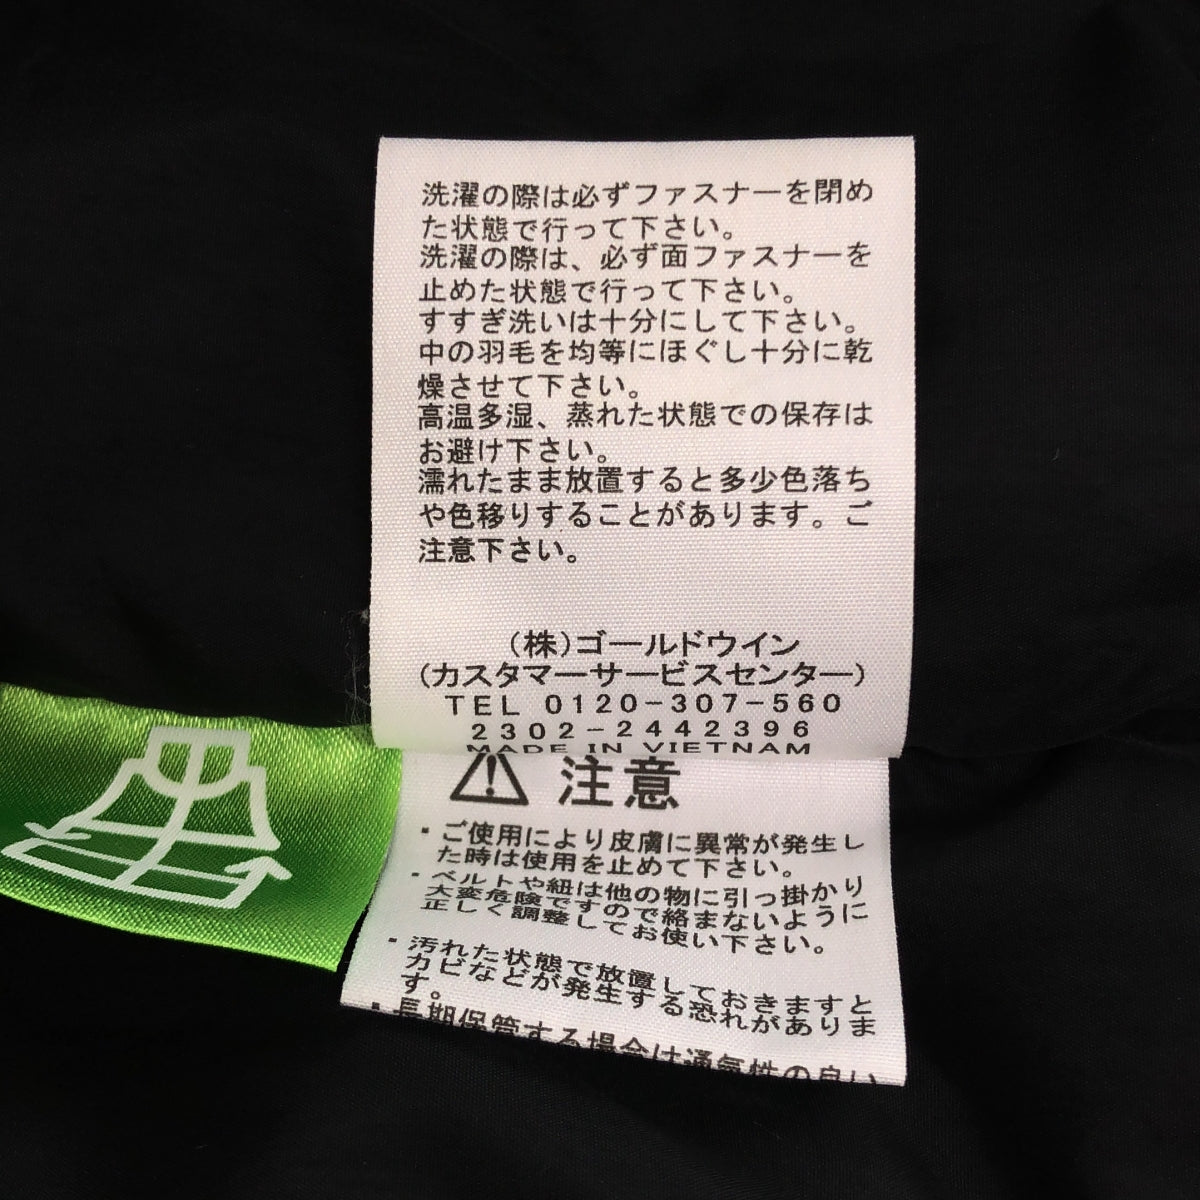 洗濯の際は必ずファスナーを閉め
た状態で行って下さい。
洗濯の際は、必ず面ファスナーを
止めた状態で行って下さい。
すすぎ洗いは十分にして下さい。
中の羽毛を均等にほぐし十分に乾
燥させて下さい。
高温多湿、蒸れた状態での保存は
お避け下さい。
濡れたまま放置すると多少色落ち
や色移りすることがあります。ご
注意下さい。
(株)ゴールドウイン
(カスタマーサービスセンター)
TEL 0120-307-560
2302-2442396
MADE IN VIETNAM
注意
・ご使用により皮膚に異常が発生し
た時は使用を止めて下さい。
・ベルトや紐は他の物に引っ掛かり
大変危険ですので絡まないように
正しく調整してお使い下さい。
・汚れた状態で放置しておきますと
カビなどが発生する恐れがありま
す。
・長期保管する場合は通気性の良い